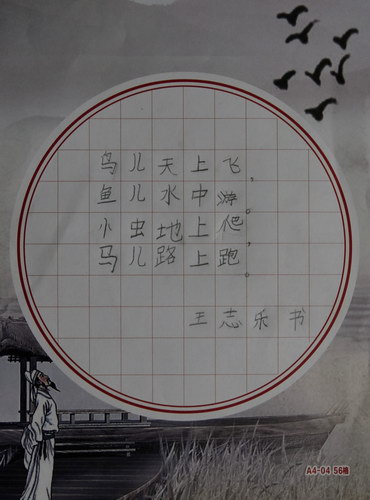 鸟儿天上飞，
鱼儿水中游。
小虫地上爬，
马儿路上跑。
王志乐书
A4-04 56格